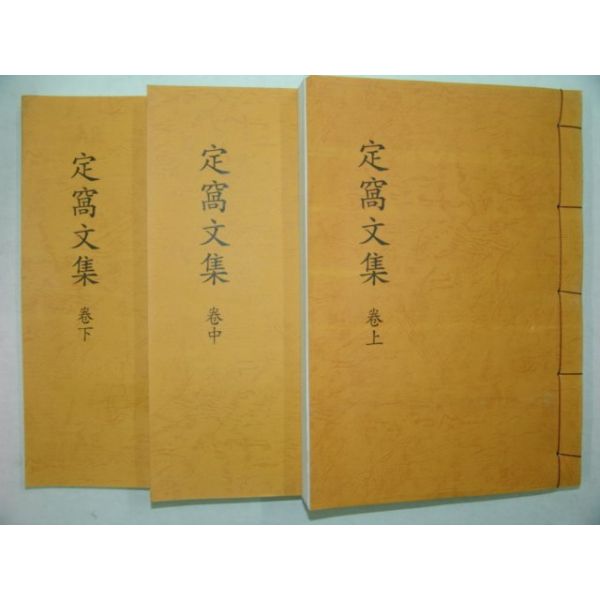 定窩文集
卷上
定窩文集
卷中
定窩文集
卷下